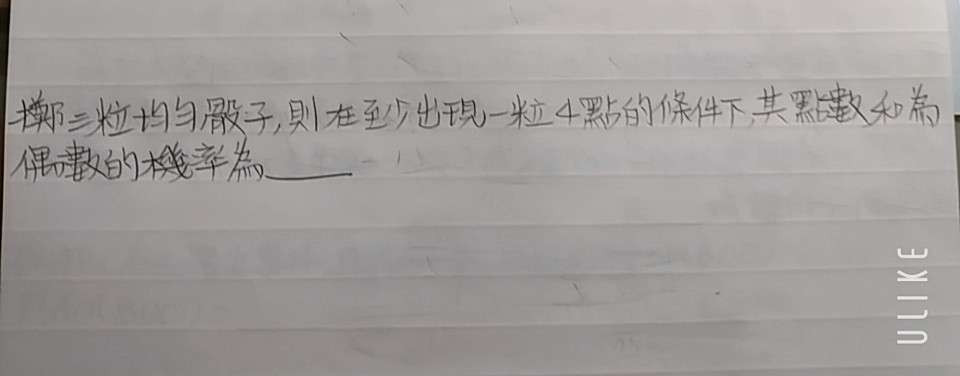 擲三粒均勻骰子,則在至少出現一粒4點的條件下,其點數和為
偶數的機率為____
ULIKE